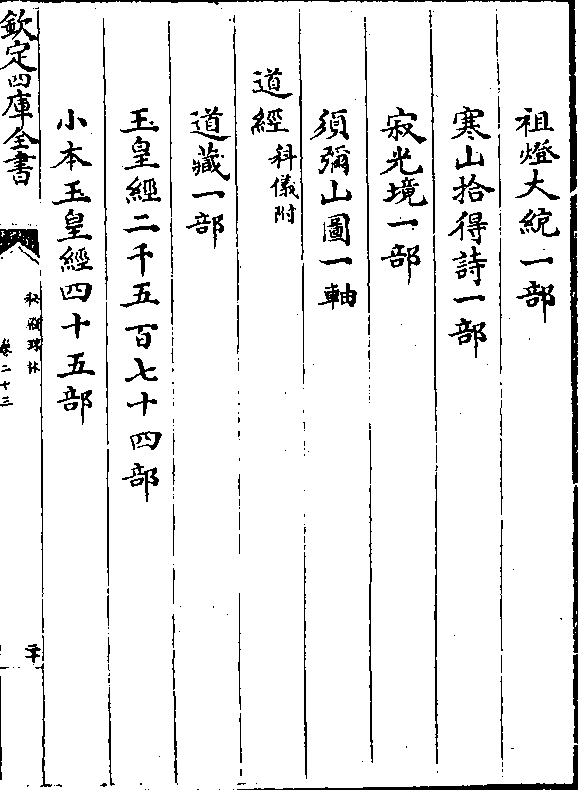 祖燈大統一部
寒山拾得詩一部
寂光境一部
須彌山圖一軸
道經科儀附
道藏一部
玉皇經二千五百七十四部
小本玉皇經四十五部
欽定四庫全書
秘殿珠林
卷二十三
二十